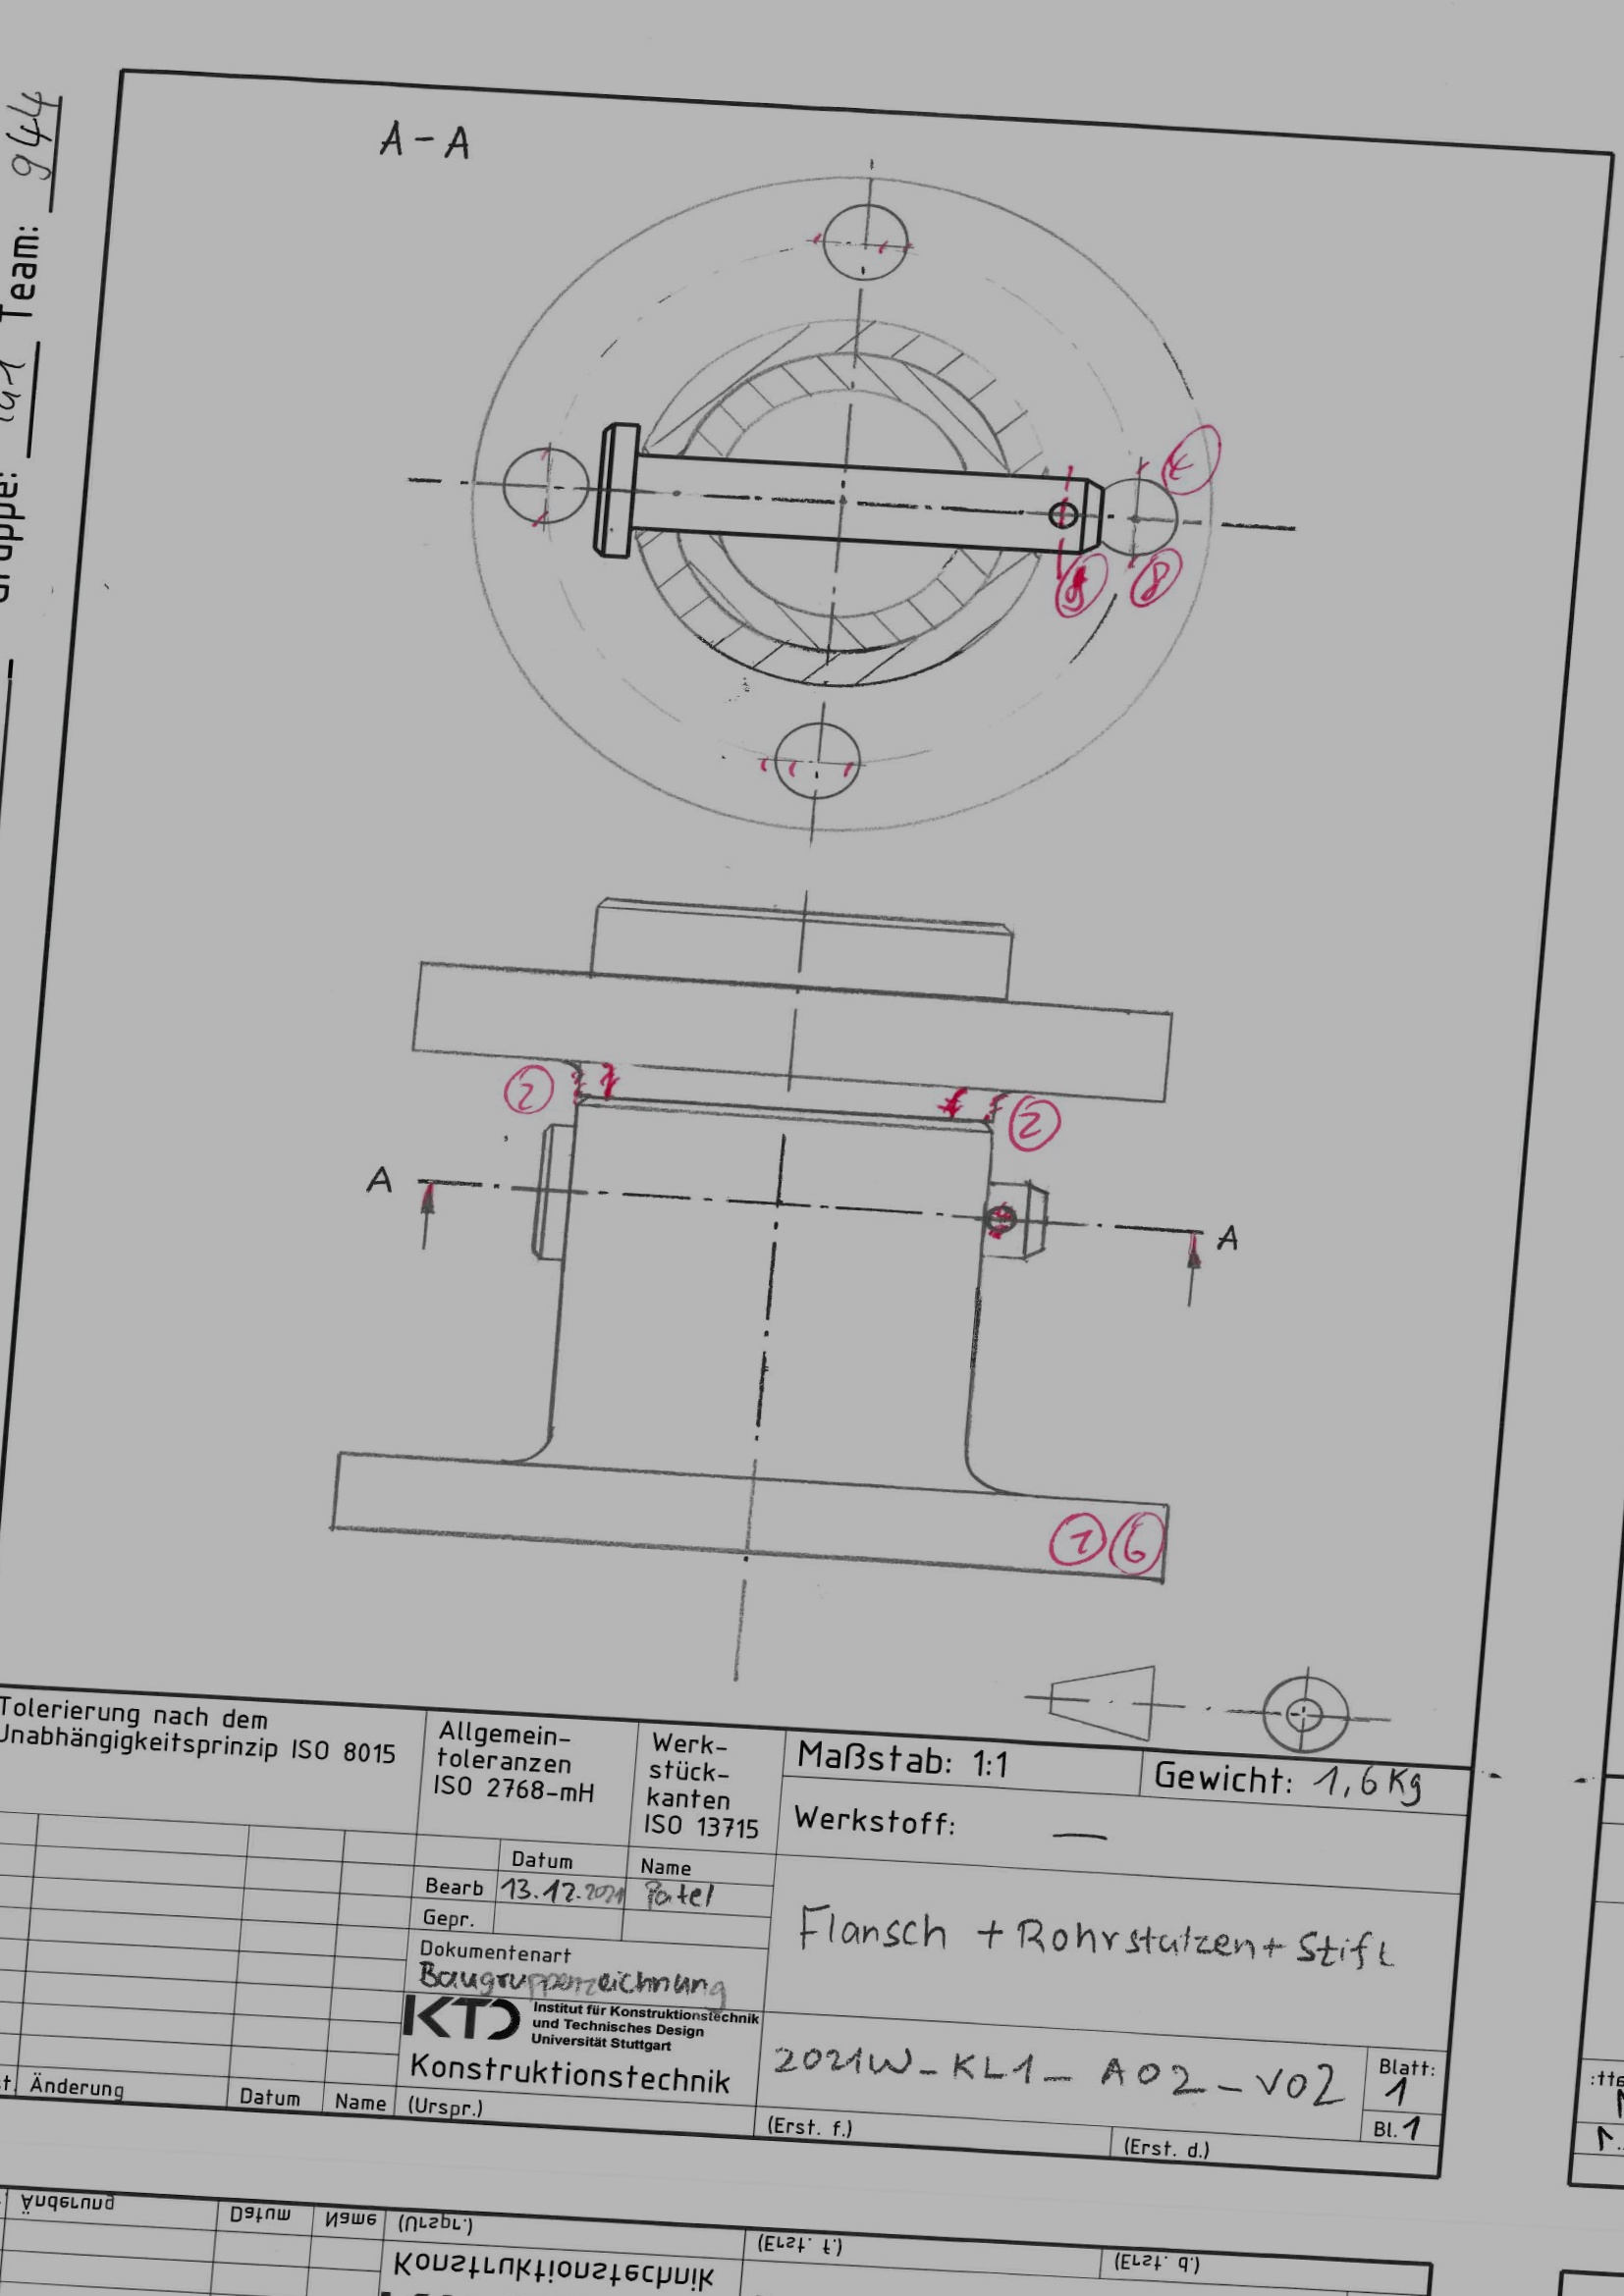 A-A
Team: 944
A
A
2
2
8
1 6
Tolerierung nach dem
Unabhängigkeitsprinzip ISO 8015
Allgemein-
toleranzen
ISO 2768-mH
Werk-
stück-
kanten
ISO 13715
Maßstab: 1:1
Gewicht: 1,6 Kg
Werkstoff: —
Datum
Name
Bearb 13.12.2021 Patel
Gepr.
Dokumentenart
Baugruppenzeichnung
Flansch + Rohrstutzen + Stift
KTD Institut für Konstruktionstechnik
und Technisches Design
Universität Stuttgart
Konstruktionstechnik
2021W_KL1_A02_V02
Blatt:
1
Bl. 1
Änderung
Datum
Name
(Urspr.)
(Erst. f.)
(Erst. d.)
Änderung
Datum
Name
(Urspr.)
(Erst. f.)
(Erst. d.)
Konstruktionstechnik